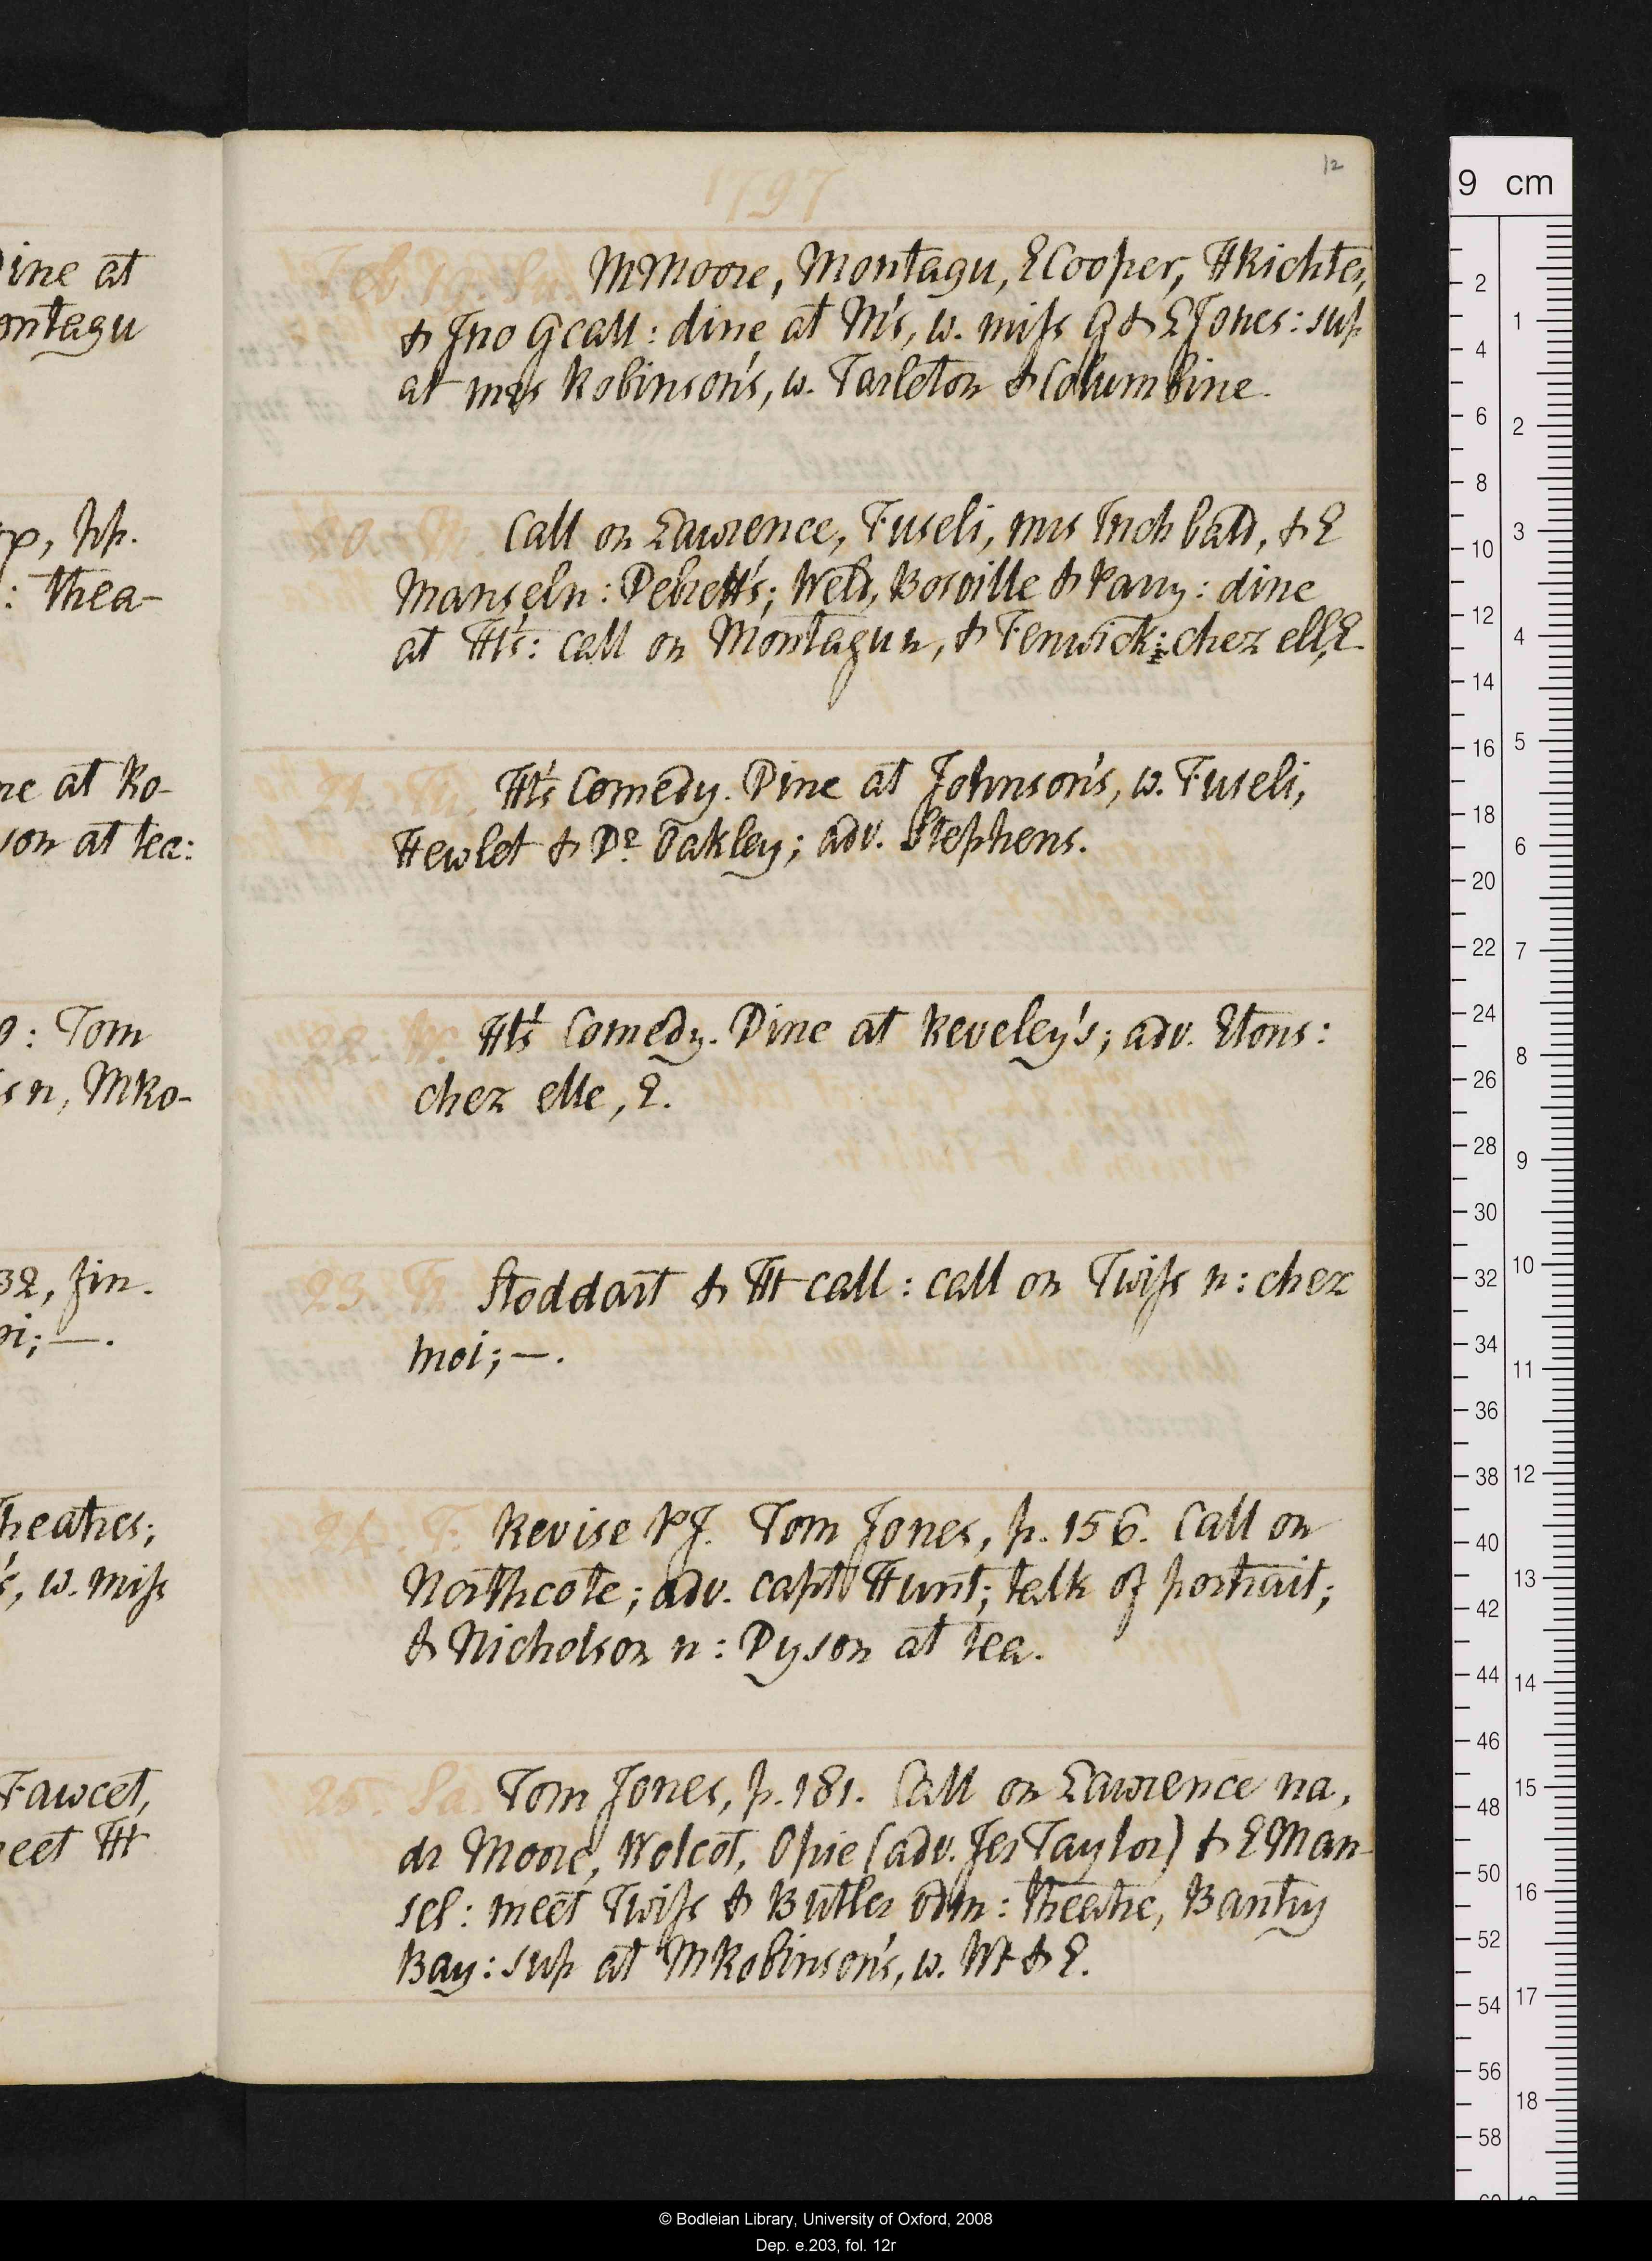 12
1797
Feb. 19. Su. MMoore, Montagu, ECooper, HRichter,
& Jno G call: dine at M's, w. miss G & LJones: sup
at mrs Robinson's, w. Tarleton & Columbine.
20. M. Call on Lawrence, Fuseli, mrs Inchbald, & E
Mansel n: Debrett's; Weld, Bosville & Parry: dine
at Ht's: call on Montagu n, & Fenwick: chez elle, E.
21. Tu. Ht's Comedy. Dine at Johnson's, w. Fuseli,
Hewlet & Dr. Oakley; adv. Stephens.
22. W. Ht's Comedy. Dine at Reveley's; adv. Etons:
chez elle, E.
23. Th. Stoddart & Ht call: call on Twiss n: chez
moi; —.
24. F. Revise PJ. Tom Jones, p. 156. Call on
Northcote; adv. capt Hunt; talk of portrait;
& Nicholson n: Dyson at tea.
25. Sa. Tom Jones, p. 181. Call on Lawrence na,
dr Moore, Wolcot, Opie (adv. Jer Taylor) & EMan-
sel: meet Twiss & Butler : theatre, Bantry
Bay: sup at MRobinson's, w. Wt & E.
ine at
ontagu
pp.
: thea-
ne at Ro-
son at tea:
: Tom
n, MRo-
32, fin.
oi; —.
heatres;
's, w. miss
Fawcet,
eet Ht
9 cm
2
4
6
8
10
12
14
16
18
20
22
24
26
28
30
32
34
36
38
40
42
44
46
48
50
52
54
56
58
1
2
3
4
5
6
7
8
9
10
11
12
13
14
15
16
17
18
© Bodleian Library, University of Oxford, 2008
Dep. e.203, fol. 12r